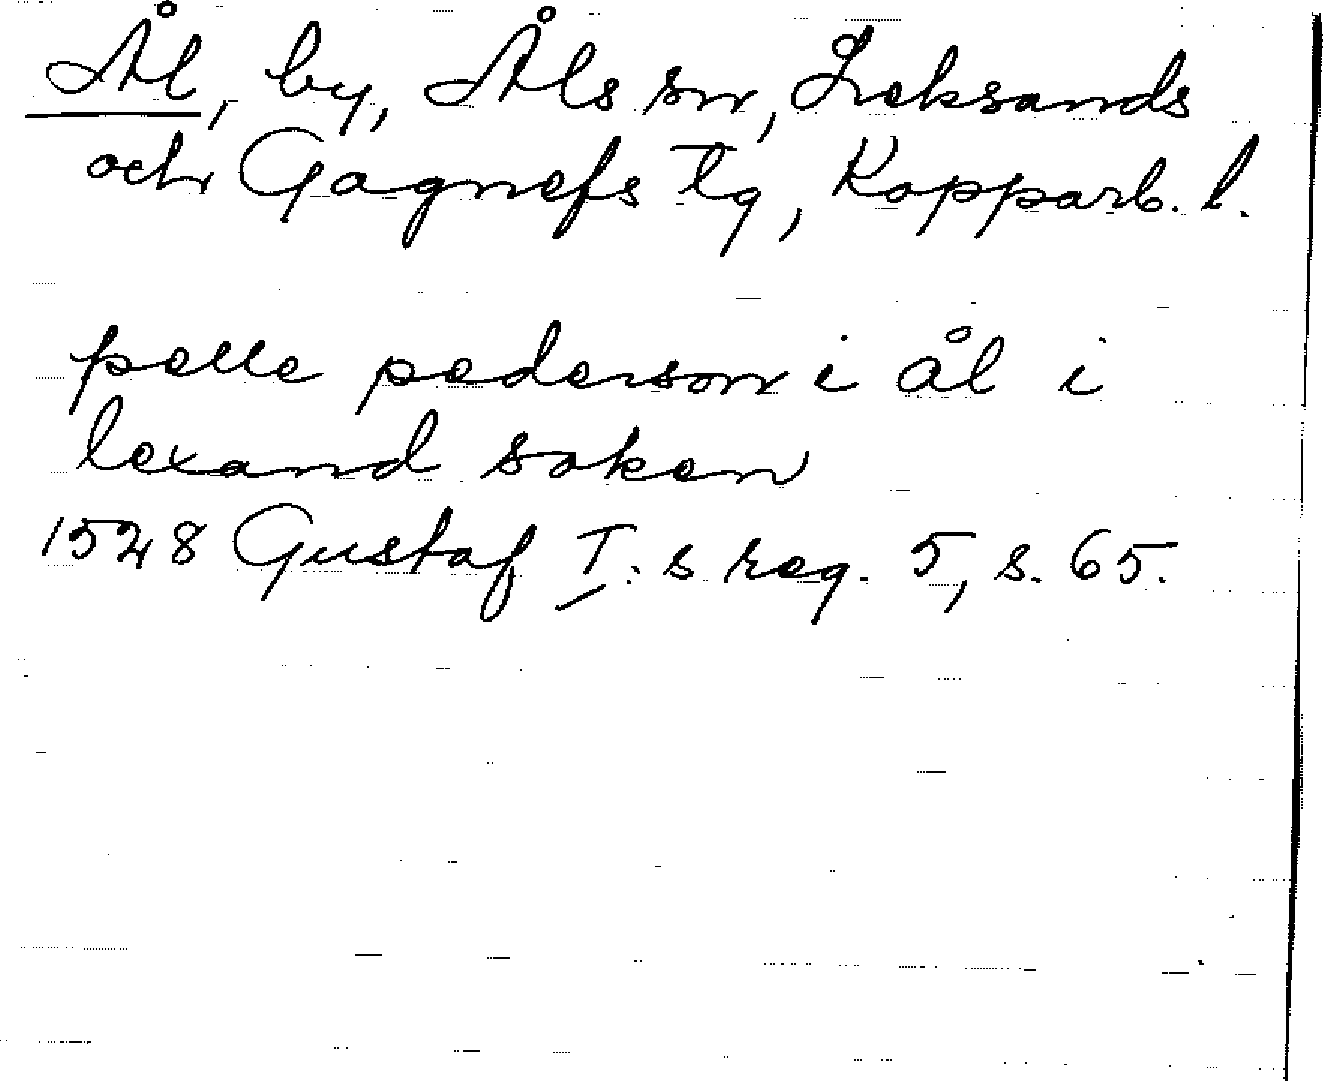 Ål, by, Åls sn, Leksands
och Gagnefs tg, Kopparb. l.
pelle pederson i ål i
lexand soken
1528 Gustaf I:s reg. 5, s. 65.